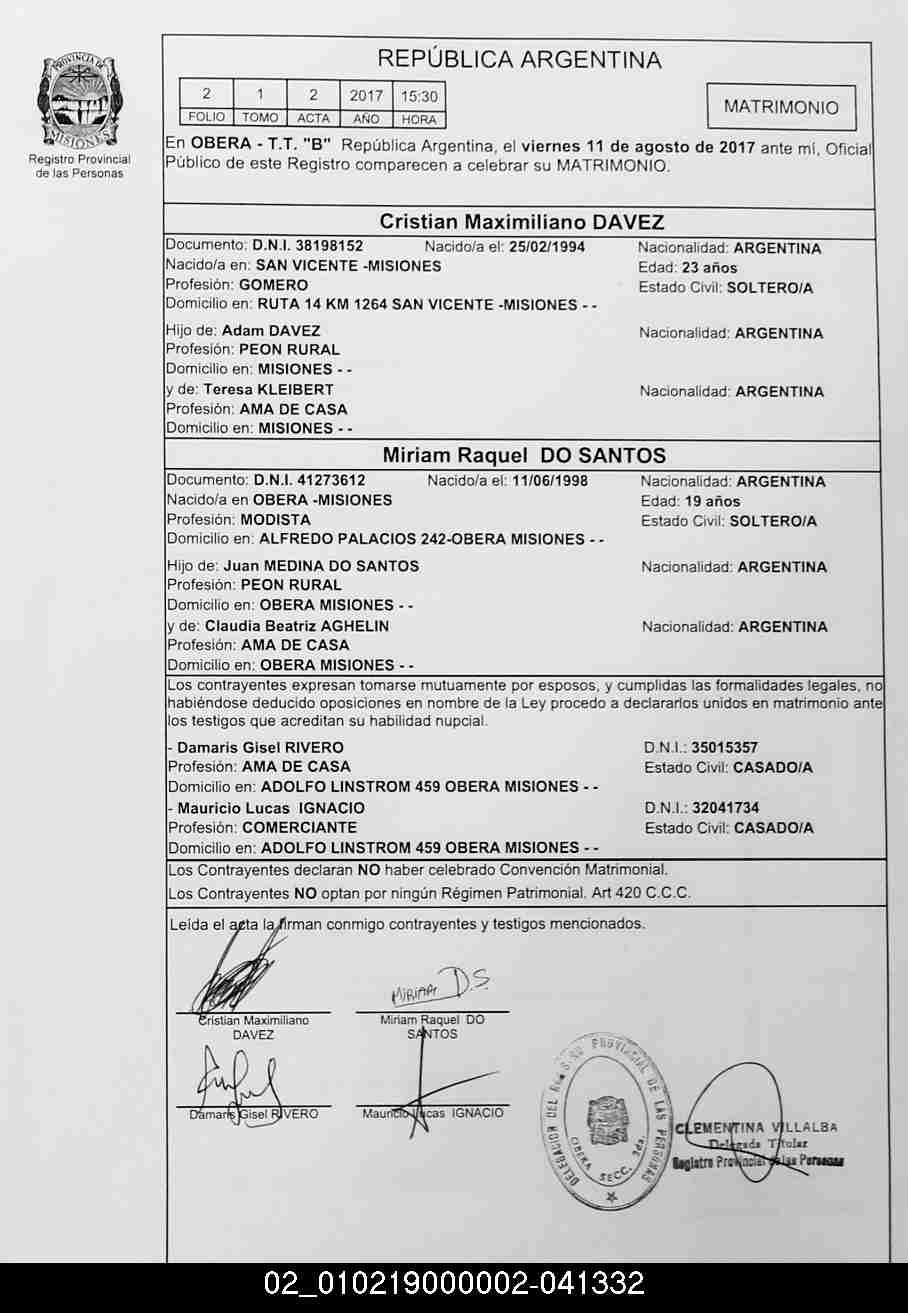 PROVINCIA DE
MISIONES
Registro Provincial
de las Personas
REPÚBLICA ARGENTINA
2 1 2 2017 15:30
FOLIO TOMO ACTA AÑO HORA
MATRIMONIO
En OBERA - T.T. "B" República Argentina, el viernes 11 de agosto de 2017 ante mí, Oficial
Público de este Registro comparecen a celebrar su MATRIMONIO.
Cristian Maximiliano DAVEZ
Documento: D.N.I. 38198152 Nacido/a el: 25/02/1994 Nacionalidad: ARGENTINA
Nacido/a en: SAN VICENTE -MISIONES Edad: 23 años
Profesión: GOMERO Estado Civil: SOLTERO/A
Domicilio en: RUTA 14 KM 1264 SAN VICENTE -MISIONES - -
Hijo de: Adam DAVEZ Nacionalidad: ARGENTINA
Profesión: PEON RURAL
Domicilio en: MISIONES - -
y de: Teresa KLEIBERT Nacionalidad: ARGENTINA
Profesión: AMA DE CASA
Domicilio en: MISIONES - -
Miriam Raquel DO SANTOS
Documento: D.N.I. 41273612 Nacido/a el: 11/06/1998 Nacionalidad: ARGENTINA
Nacido/a en OBERA -MISIONES Edad: 19 años
Profesión: MODISTA Estado Civil: SOLTERO/A
Domicilio en: ALFREDO PALACIOS 242-OBERA MISIONES - -
Hijo de: Juan MEDINA DO SANTOS Nacionalidad: ARGENTINA
Profesión: PEON RURAL
Domicilio en: OBERA MISIONES - -
y de: Claudia Beatriz AGHELIN Nacionalidad: ARGENTINA
Profesión: AMA DE CASA
Domicilio en: OBERA MISIONES - -
Los contrayentes expresan tomarse mutuamente por esposos, y cumplidas las formalidades legales, no
habiéndose deducido oposiciones en nombre de la Ley procedo a declararlos unidos en matrimonio ante
los testigos que acreditan su habilidad nupcial.
- Damaris Gisel RIVERO D.N.I.: 35015357
Profesión: AMA DE CASA Estado Civil: CASADO/A
Domicilio en: ADOLFO LINSTROM 459 OBERA MISIONES - -
- Mauricio Lucas IGNACIO D.N.I.: 32041734
Profesión: COMERCIANTE Estado Civil: CASADO/A
Domicilio en: ADOLFO LINSTROM 459 OBERA MISIONES - -
Los Contrayentes declaran NO haber celebrado Convención Matrimonial.
Los Contrayentes NO optan por ningún Régimen Patrimonial. Art 420 C.C.C.
Leída el acta la firman conmigo contrayentes y testigos mencionados.
MIRIAM D.S.
Cristian Maximiliano
DAVEZ
Miriam Raquel DO
SANTOS
Damaris Gisel RIVERO
Mauricio Lucas IGNACIO
DELEGACION DEL PROVINCIAL DE LAS PERSONAS
OBERA SECC. 2da.
CLEMENTINA VILLALBA
Delegada Titular
Registro Provincial de las Personas
02_010219000002-041332